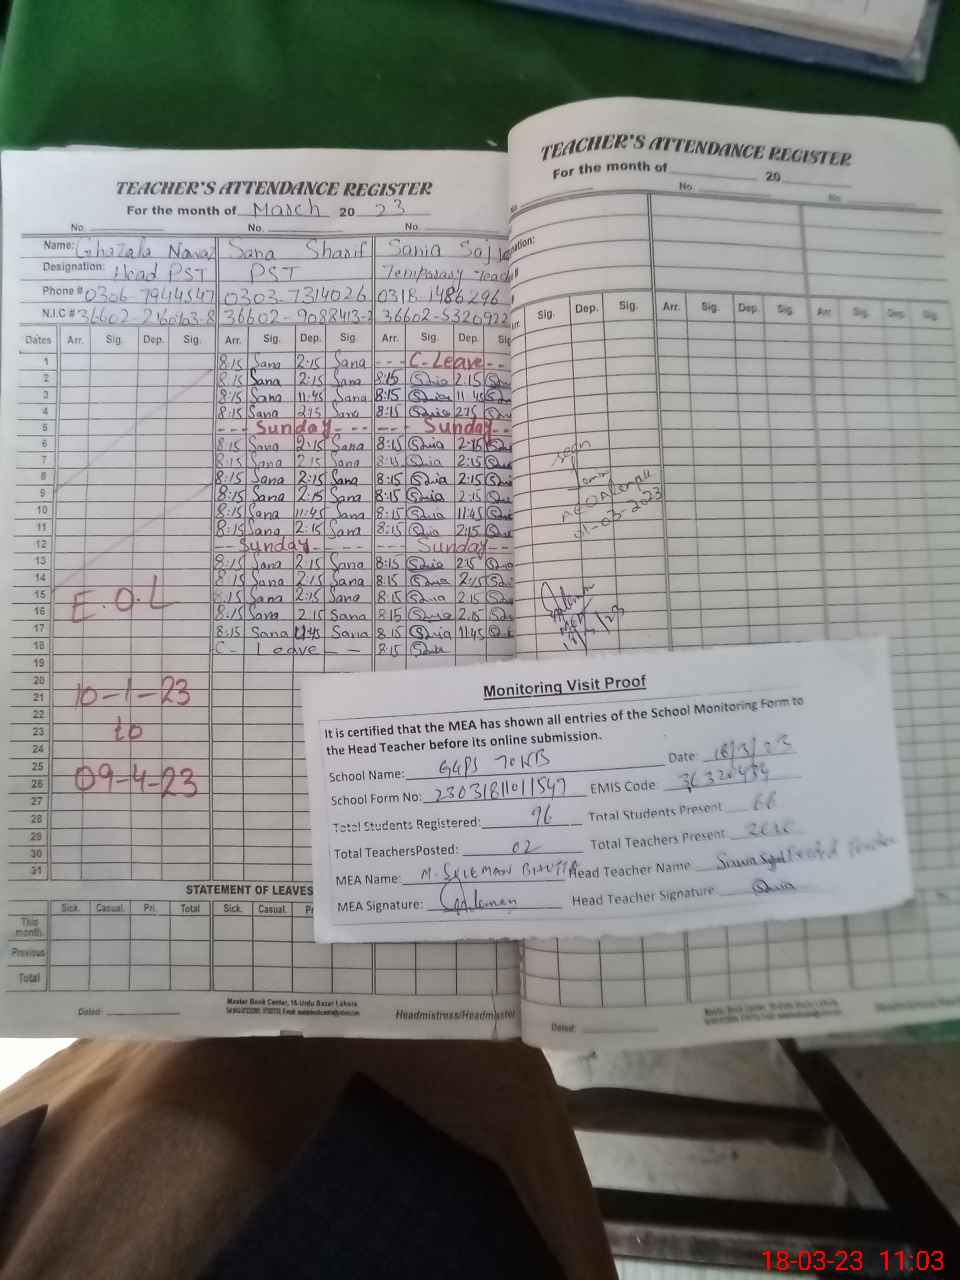 TEACHER'S ATTENDANCE REGISTER
For the month of March 20 23
No. No. No.
Name: Ghazala Nawaz Sana Sharif Sania Sajj
Designation: Head PST PST Temporary Teach
Phone # 0306-7944547 0303-7314026 0318-1486296
N.I.C # 36602- 36602-9088413-2 36602-5320922
Dates Arr. Sig. Dep. Sig. Arr. Sig. Dep. Sig. Arr. Sig. Dep. Sig
1 8:15 Sana 2:15 Sana --- C-Leave--
2 8:15 Sana 2:15 Sana 8:15 2:15
3 8:15 Sana 11:45 Sana 8:15 11:45
4 8:15 Sana 2:15 Sana 8:15 2:15
5 --- Sunday --- --- Sunday --
6 8:15 Sana 2:15 Sana 8:15 2:15
7 8:15 Sana 2:15 Sana 8:15 2:15
8 8:15 Sana 2:15 Sana 8:15 2:15
9 8:15 Sana 2:15 Sana 8:15 2:15
10 8:15 Sana 11:45 Sana 8:15 11:45
11 8:15 Sana 2:15 Sana 8:15 2:15
12 -- Sunday ---- --- Sunday --
13 8:15 Sana 2:15 Sana 8:15 2:15
14 8:15 Sana 2:15 Sana 8:15 2:15
15 8:15 Sana 2:15 Sana 8:15 2:15
E.O.L
16 8:15 Sana 2:15 Sana 8:15 2:15
17 8:15 Sana 11:45 Sana 8:15 11:45
18 C- Leave -- 8:15
19
20
21 10-1-23
22
23 to
24
25
26 09-4-23
27
28
29
30
31
STATEMENT OF LEAVES
Sick. Casual. Pri. Total Sick. Casual. Pr
This month.
Previous
Total
Master Book Center, 16-Urdu Bazar Lahore.
Dated: Headmistress/Headmaster
TEACHER'S ATTENDANCE REGISTER
For the month of 20
No. No.
Sig. Dep. Sig. Arr. Sig. Dep. Sig. Arr Sig. Dep. Sig.
Seen
-03-2023
Dated:
Monitoring Visit Proof
It is certified that the MEA has shown all entries of the School Monitoring Form to
the Head Teacher before its online submission.
School Name: GGPS 70 WB Date: 18/3/23
School Form No: 23031811011547 EMIS Code 36320434
Total Students Registered: 96 Total Students Present 66
Total TeachersPosted: 02 Total Teachers Present
MEA Name: M. SULEMAN BHUTTA Head Teacher Name
MEA Signature: Suleman Head Teacher Signature:
18-03-23 11:03